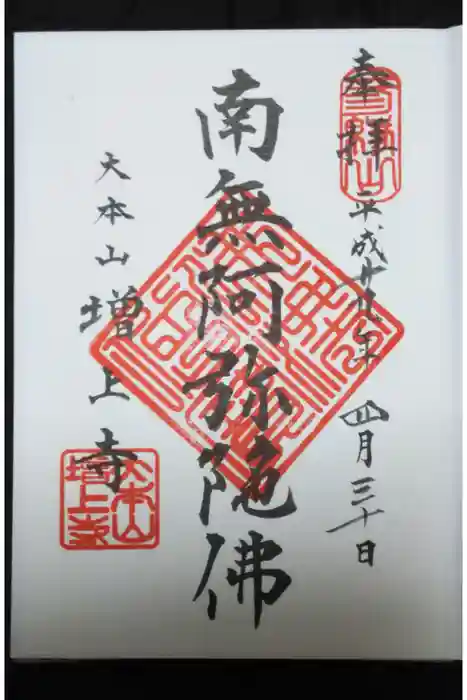 奉拝
平成廿九年 四月三十日
南無阿弥陀佛
大本山 増上寺
大本山
増上寺